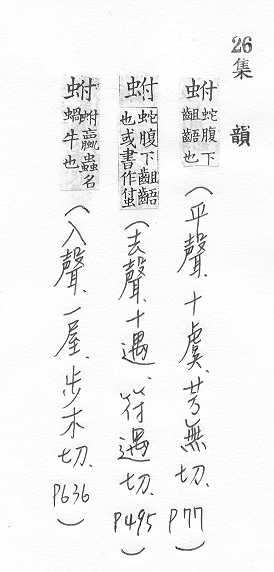 26
集韻
蚹 蛇腹下齟齬也(平聲、十虞、芳無切、P77)
蚹 蛇腹下齟齬也或書作䖊(去聲、十遇、符遇切、P495)
蚹 蚹蠃蟲名蝸牛也(入聲、一屋、步木切、P636)